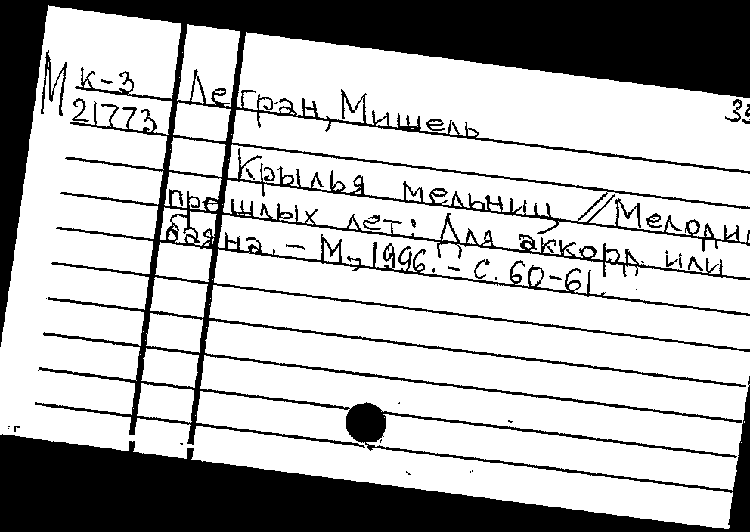 М К-3 Легран, Мишель 33
21773
Крылья мельниц //Мелодии
прошлых лет: Для аккорд. или
баяна. – М., 1996. – С. 60-61.